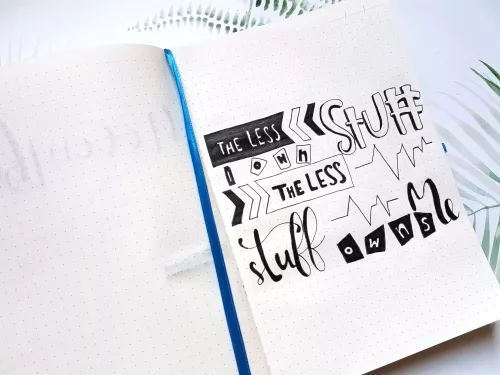 THE LESS STUFF
I OWN
THE LESS
stuff OWNS Me